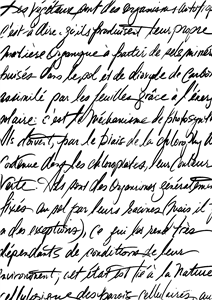 Les végétaux sont des organismes autotrop
c'est à dire qu'ils produisent leur propre
matière organique à partir de sels miné
puisés dans le sol et de dioxyde de carbon
assimilé par les feuilles grâce à l'éner
solaire : c'est le mécanisme de photosynth
la chlorophy
contenue dans les chloroplastes, leur couleur
verte. Ils sont des organismes généralemen
fixés au sol par leurs racines (mais il
a des exceptions), ce qui les rend très
dépendants de conditions de leur
environnement, cet état est lié à la nature
cellulosique des parois cellulaires